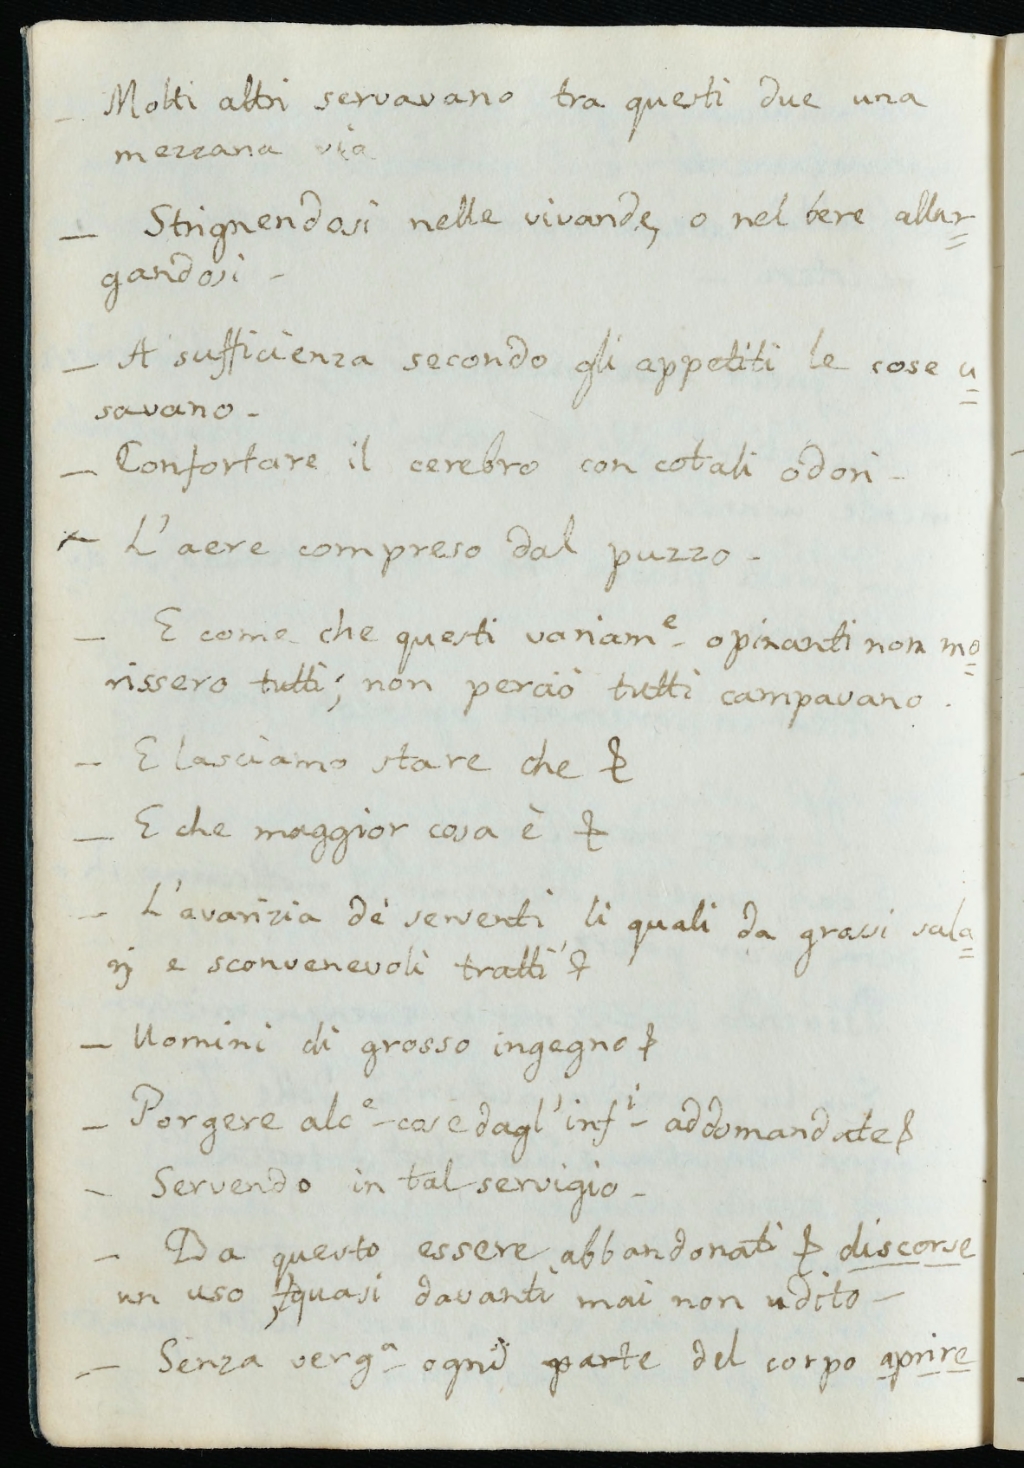 – Molti altri servavano tra questi due una
mezzana via
– Strignendosi nelle vivande, o nel bere allar=
gandosi –
– A sufficienza secondo gli appetiti le cose u=
savano –
– Confortare il cerebro con cotali odori –
– L'aere compreso dal puzzo –
– E come che questi variamᵉ opinanti non mo=
rissero tutti; non perciò tutti campavano.
– E lasciamo stare che
– E che maggior cosa è
– L'avarizia de' serventi, li quali da grassi sala=
rj e sconvenevoli tratti
– Uomini di grosso ingegno
– Porgere alcᵉ cose dagl'infⁱ addomandate
– Servendo in tal servigio –
– Da questo essere abbandonati discorse
un uso, quasi davanti mai non udito –
– Senza vergᵃ ogni parte del corpo aprire